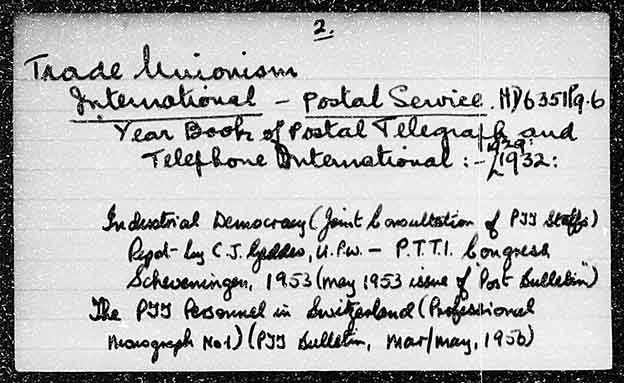 2.
Trade Unionism
International - Postal Service. HD6351Pg.6
Year Book of Postal Telegraph and
1929:
Telephone International :- 1932:
Industrial Democracy (Joint Consultation of PTT Staffs)
Rept- by C.J. Geddes, U.P.W. - P.T.T.I. Congress
Scheveningen, 1953 (May 1953 issue of "Post Bulletin")
The PTT Personnel in Switzerland (Professional
Monograph No 1) (PTT Bulletin, Mar/May, 1956)